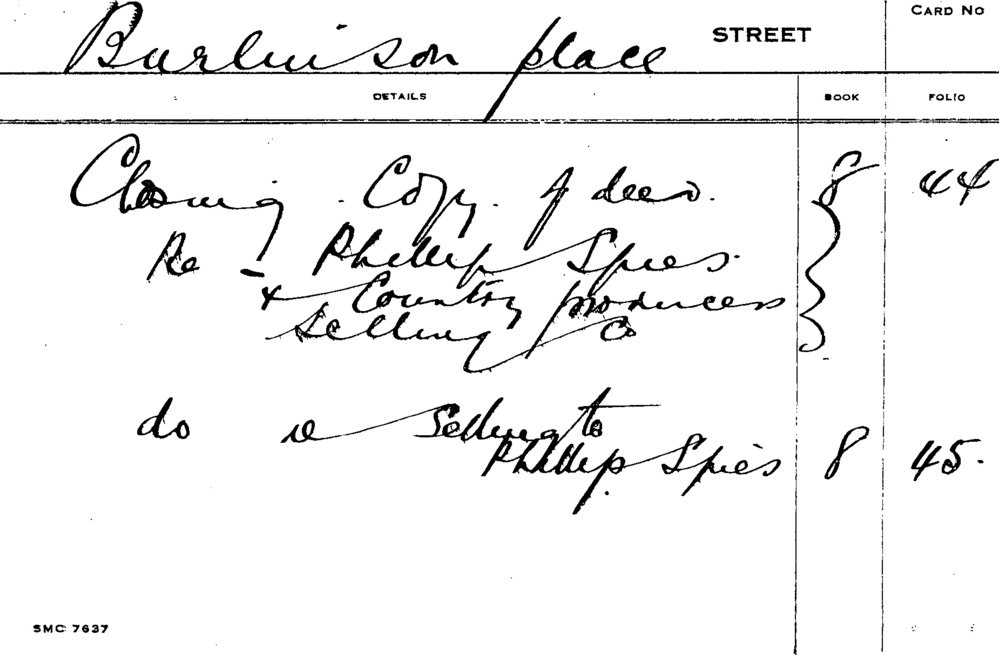 Burlinson place STREET CARD NO
DETAILS BOOK FOLIO
Closing Copy of deed. 8 44
Re - Phillip Spies.
& Country producers
Selling Co
do re Selling to
Phillip Spies 8 45.
SMC 7637